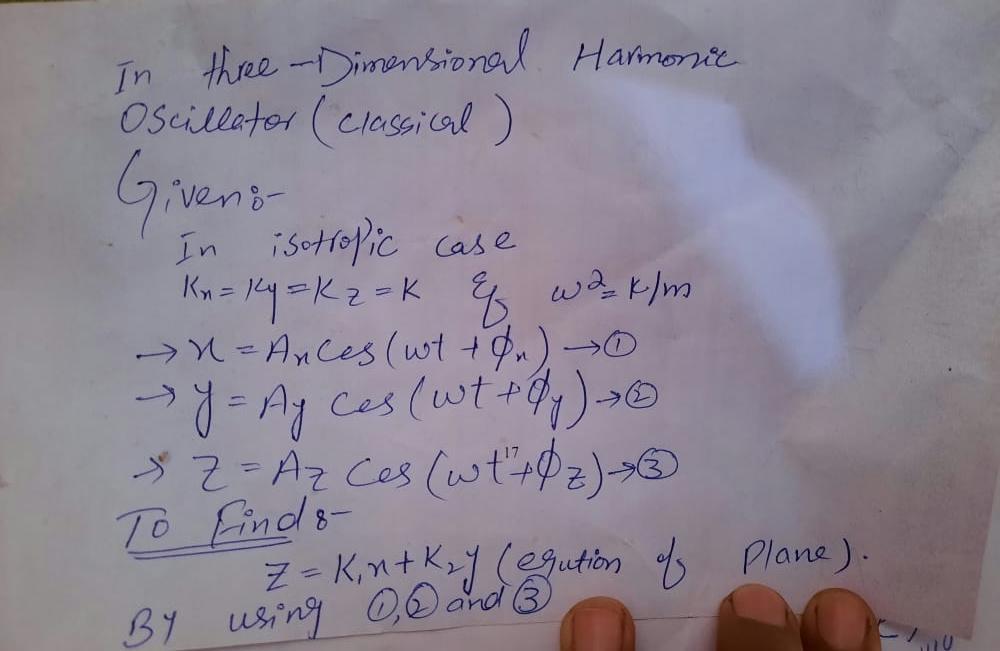 In three-Dimensional Harmonic
Oscillator (classical)
Given:-
In isotropic case
Kx = Ky = Kz = K & ω² = K/m
→ x = Ax Cos(ωt + ϕx) → ①
→ y = Ay Cos(ωt + ϕy) → ②
→ z = Az Cos(ωt + ϕz) → ③
17
To Find:-
Z = K₁x + K₂y (eqution of Plane).
By using ①, ② and ③